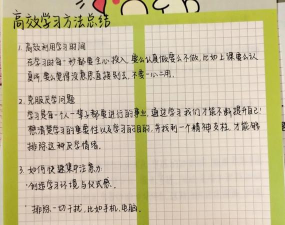 高效学习方法总结
1. 高效利用学习时间
在学习时每一秒都要全心投入,要么认真做要么不做,比如上课要么认
真听,要么觉得没意思直接别去,不要一心二用。
2. 克服厌学问题
学习是每一个人一辈子都要进行的事业,通过学习我们才能不断提升自己!
想清楚学习的重要性以及学习的目的,寻找到一个精神支柱,才能够
排除这种厌学情绪。
3. 如何快速集中注意力
·创造学习环境与仪式感。
·排除一切干扰,比如手机,电脑。